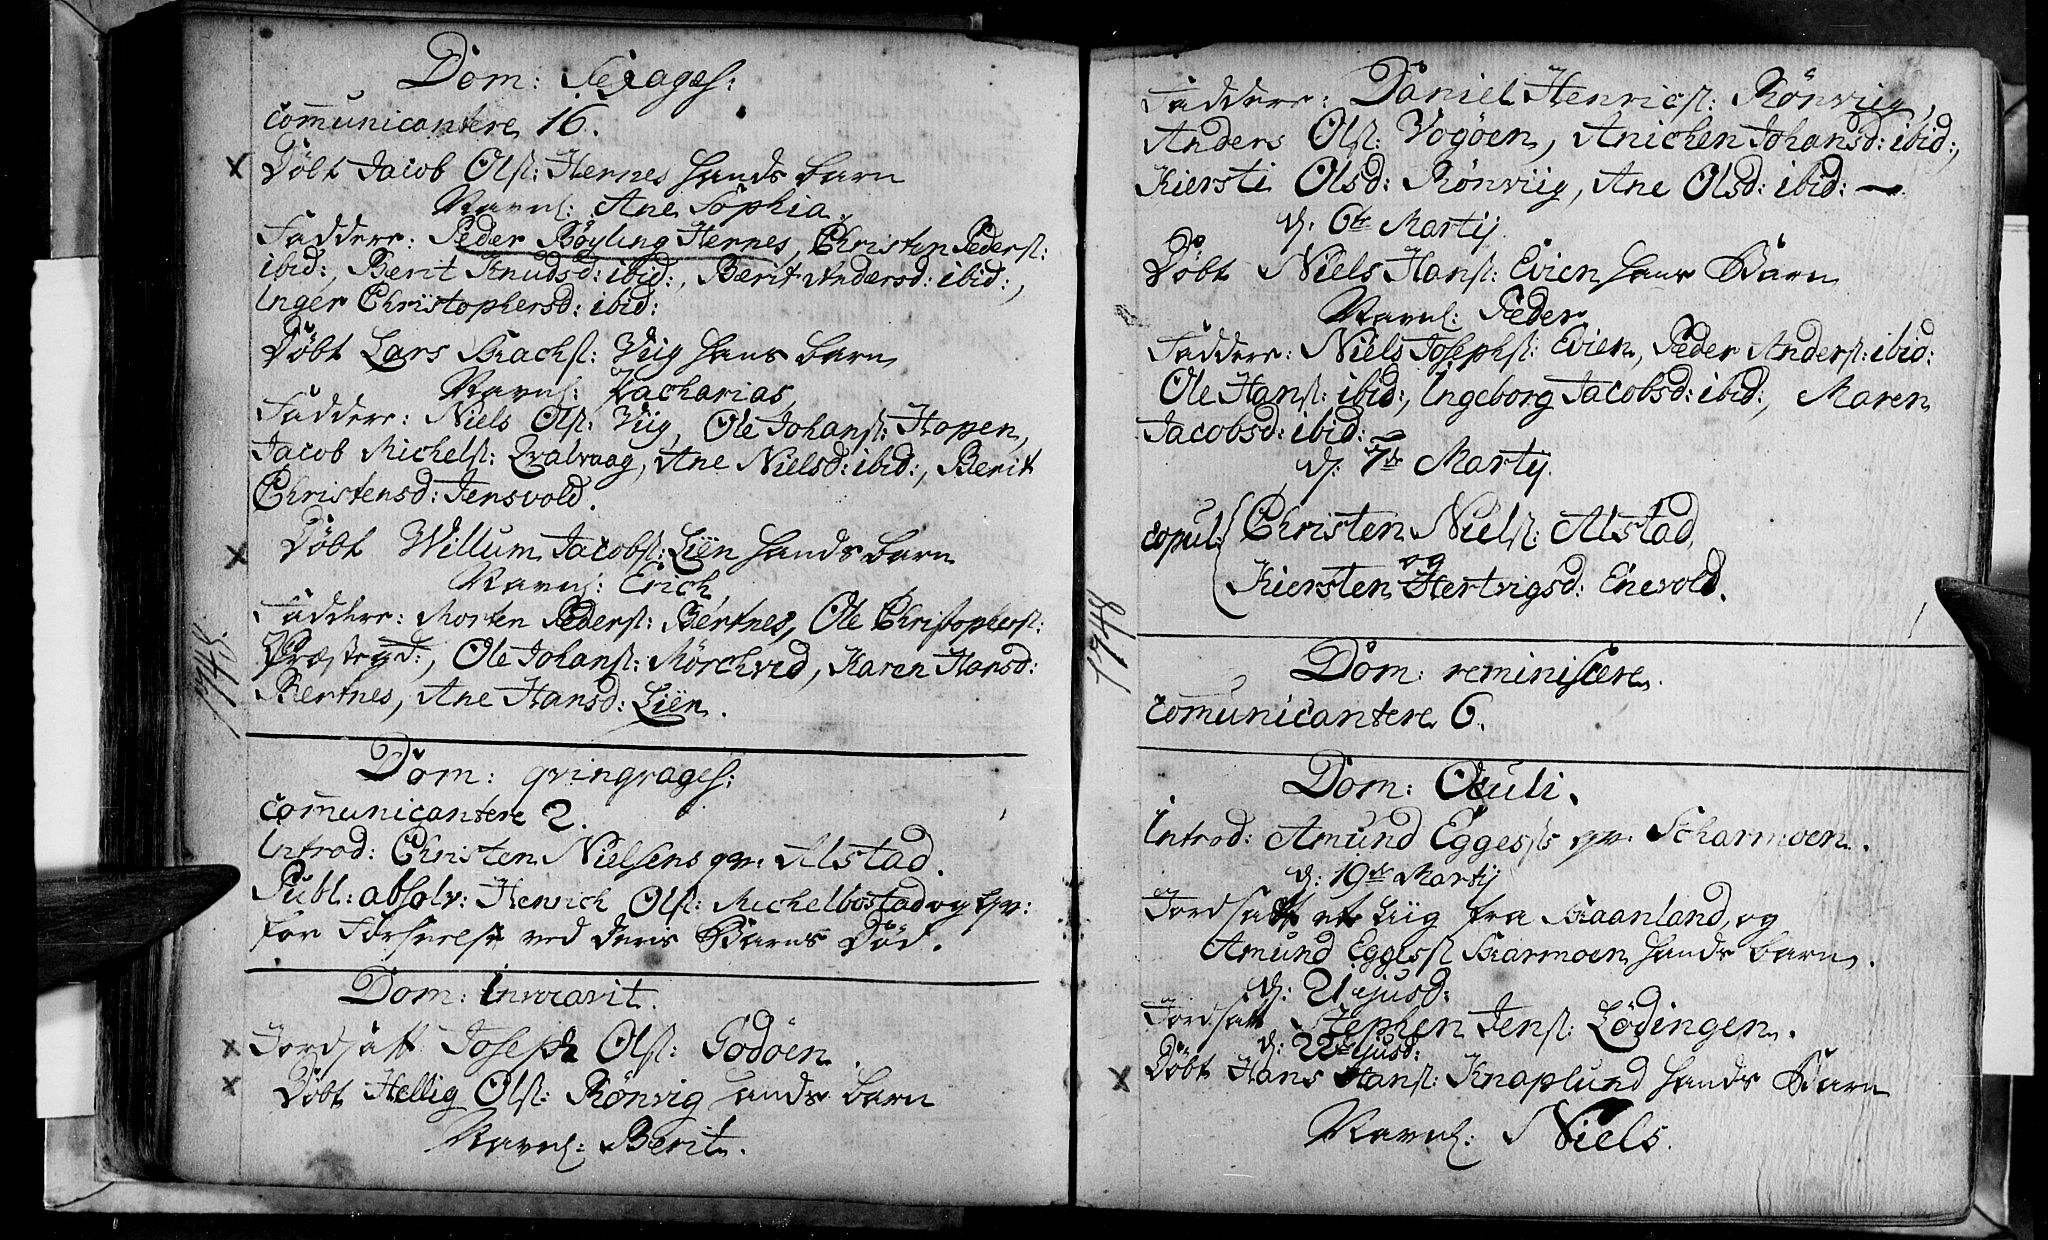 Dom: Sexages:
communicantere 16.
Döbt Jacob Olsl: Hernes hands barn
Navnl: Ane Sophia.
Faddere: Peder Böyling Hernes, Christen Pedersl:
ibid:, Berit Knudsd: ibid:, Berit Andersd: ibid:,
Inger Christophersd: ibid:
Döbt Lars Sachsl: Viig hans barn
Navnl: Zacharias,
Faddere: Niels Olsl: Viig, Ole Johansl: Hopen,
Jacob Michelsl: Qvalvaag, Ane Nielsd: ibid:, Berit
Christensd: Jensvold.
Döbt Willum Jacobsl: Liën hands barn
Navnl: Erich,
1748.
Faddere: Morten Pedersl: Bertnes, Ole Christophersl:
Præstegd:, Ole Johansl: Mörchved, Karen Hansd:
Bertnes, Ane Hansd: Liën.
Dom: qvinqvages:
communicantere 2.
Introd: Christen Nielsens qv: Alstad.
Publ: absolv: Henrich Olsl: Michelbostad og qv:
for Forseelse ved deris Barns Död.
Dom: Invocavit.
Jordsatt Joseph Olsl: Godöen.
Döbt Hellig Olsl: Rönvig hands barn
Navnl: Berit.
Faddere: Daniel Henricsl: Rönviig,
Anders Olsl: Vogöen, Anichen Johansd: ibid:,
Kiersti Olsd: Rönviig, Ane Olsd: ibid:
d: 6te Martij
Döbt Niels Hansl: Evien hans Barn
Navnl: Peder
Faddere: Niels Josephsl: Evien, Peder Andersl: ibid:
Ole Hansl: ibid:, Ingeborg Jacobsd: ibid:, Maren
Jacobsd: ibid:
d: 7de Martij.
copul: Christen Nielsl: Alstad,
og
Kiersten Hertvigsd: Enevold.
1748
Dom: reminiscere.
communicantere 6.
Dom: Oculi.
Introd: Amund Eggessls qv: Scharmoen.
d: 19de Martij
Jordsatt et Liig fra Saanland, og
Amund Eggessl Skarmoen hands barn.
d: 21 ejusd:
Jordsatt Stephen Jensl: Lödingen.
d: 22de ejusd:
Döbt Hans Hansl: Knaplund hands Barn
Navnl: Niels.